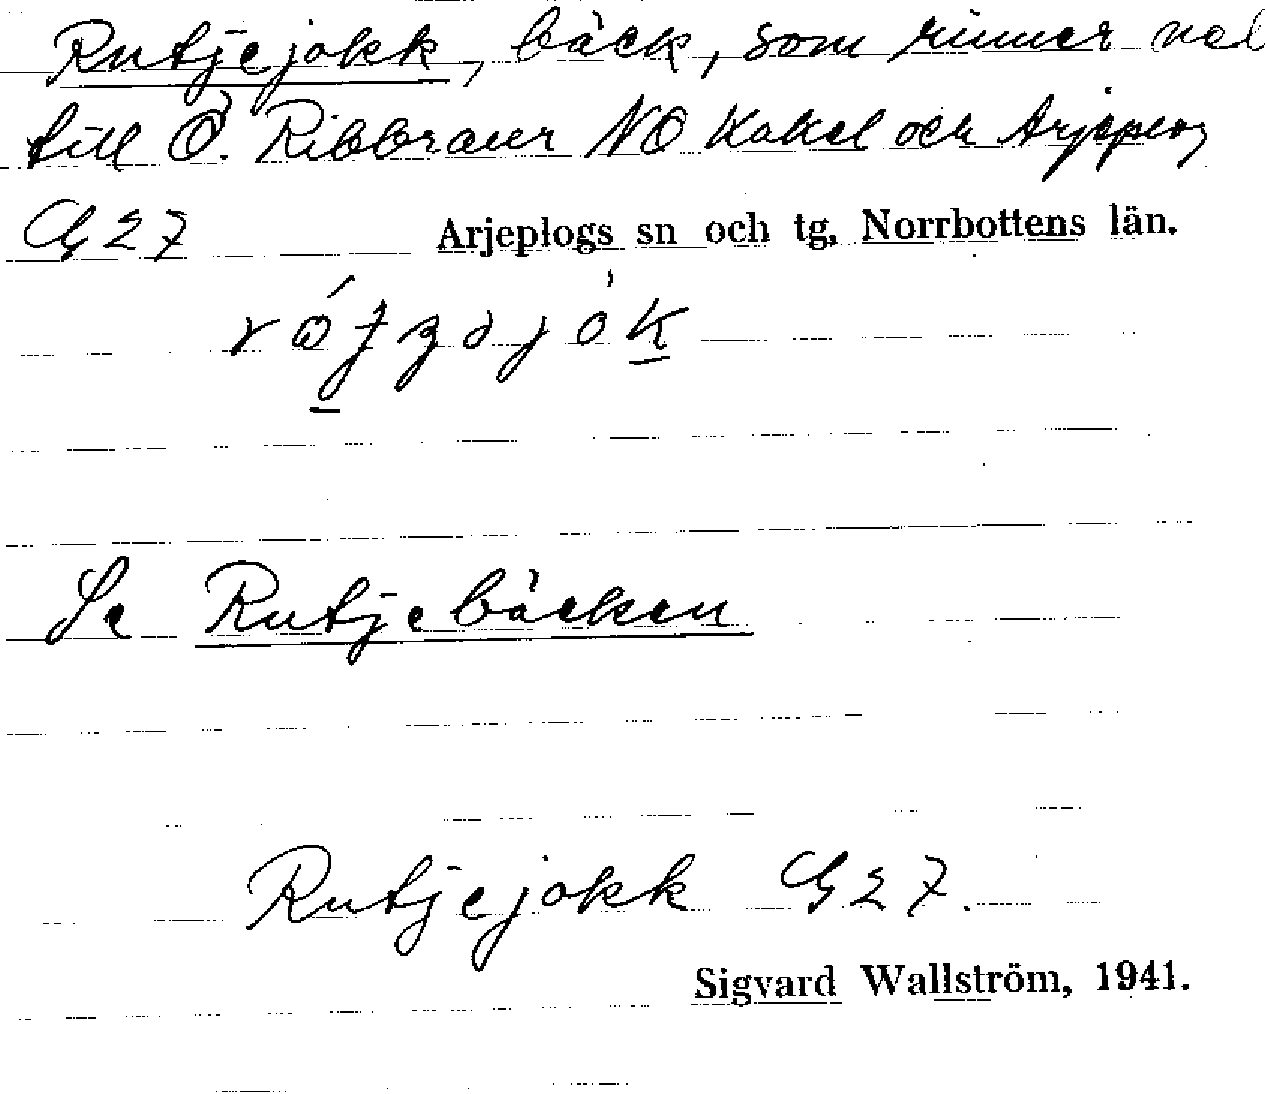 Rutjejokk, bäck, som rinner ned
till Ö. Ribbraur NO Kakel och Arjeplog
G27 Arjeplogs sn och tg, Norrbottens län.
Se Rutjebäcken
Rutjejokk G27.
Sigvard Wallström, 1941.